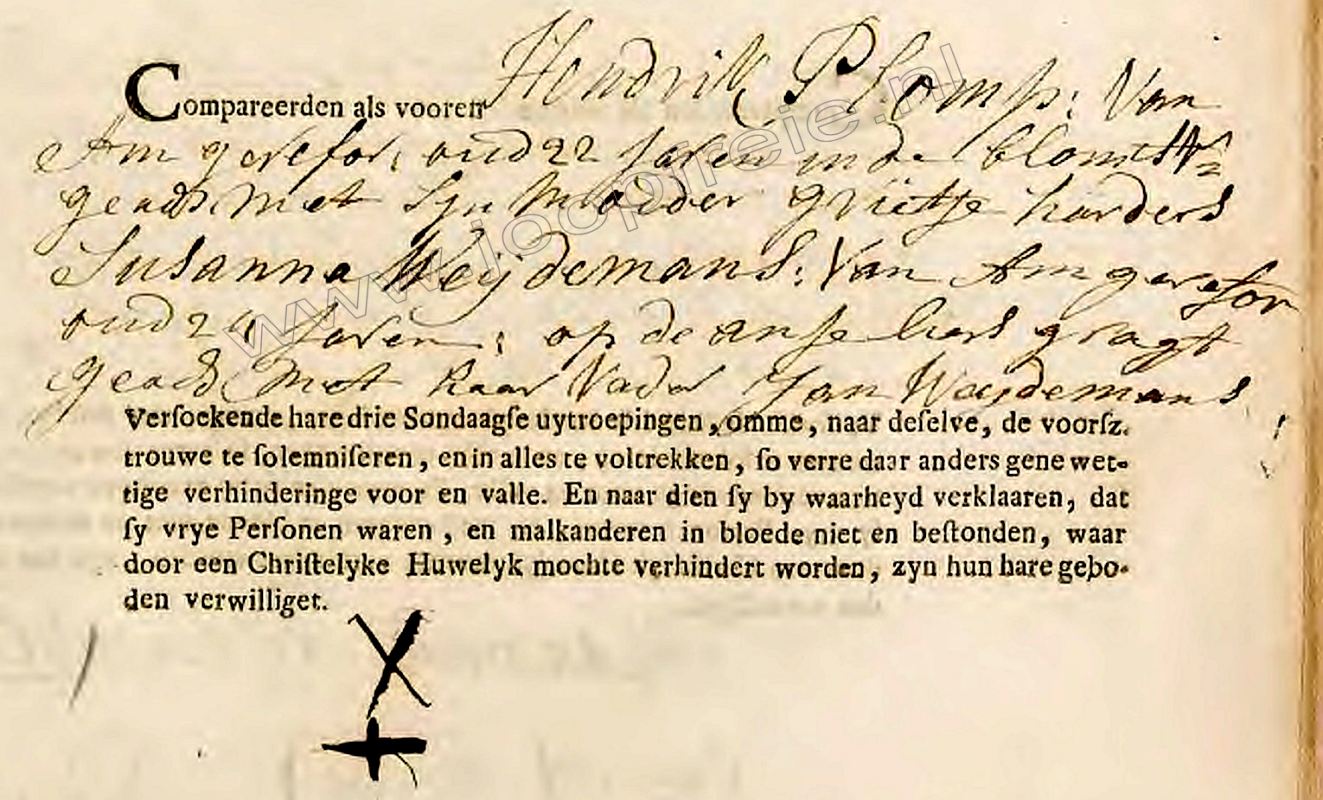 Compareerden als vooren Hendrik Plomp: Van
Am gerefor, oud 22 Jaren in de blomstr=
geads. Met Syn Modder grietje harders
Susanna Weijdemans: Van Am gerefor
oud 24 Jaren; op de anseliers gragt
geads Met haar Vader Jan Weijdemans
Verſoekende hare drie Sondaagſe uytroepingen, omme, naar deſelve, de voorſz.
trouwe te ſolemniſeren, en in alles te voltrekken, ſo verre daar anders gene wet-
tige verhinderinge voor en valle. En naar dien ſy by waarheyd verklaaren, dat
ſy vrye Perſonen waren, en malkanderen in bloede niet en beſtonden, waar
door een Chriſtelyke Huwelyk mochte verhindert worden, zyn hun hare gebo-
den verwilliget.
www.joopreie.nl